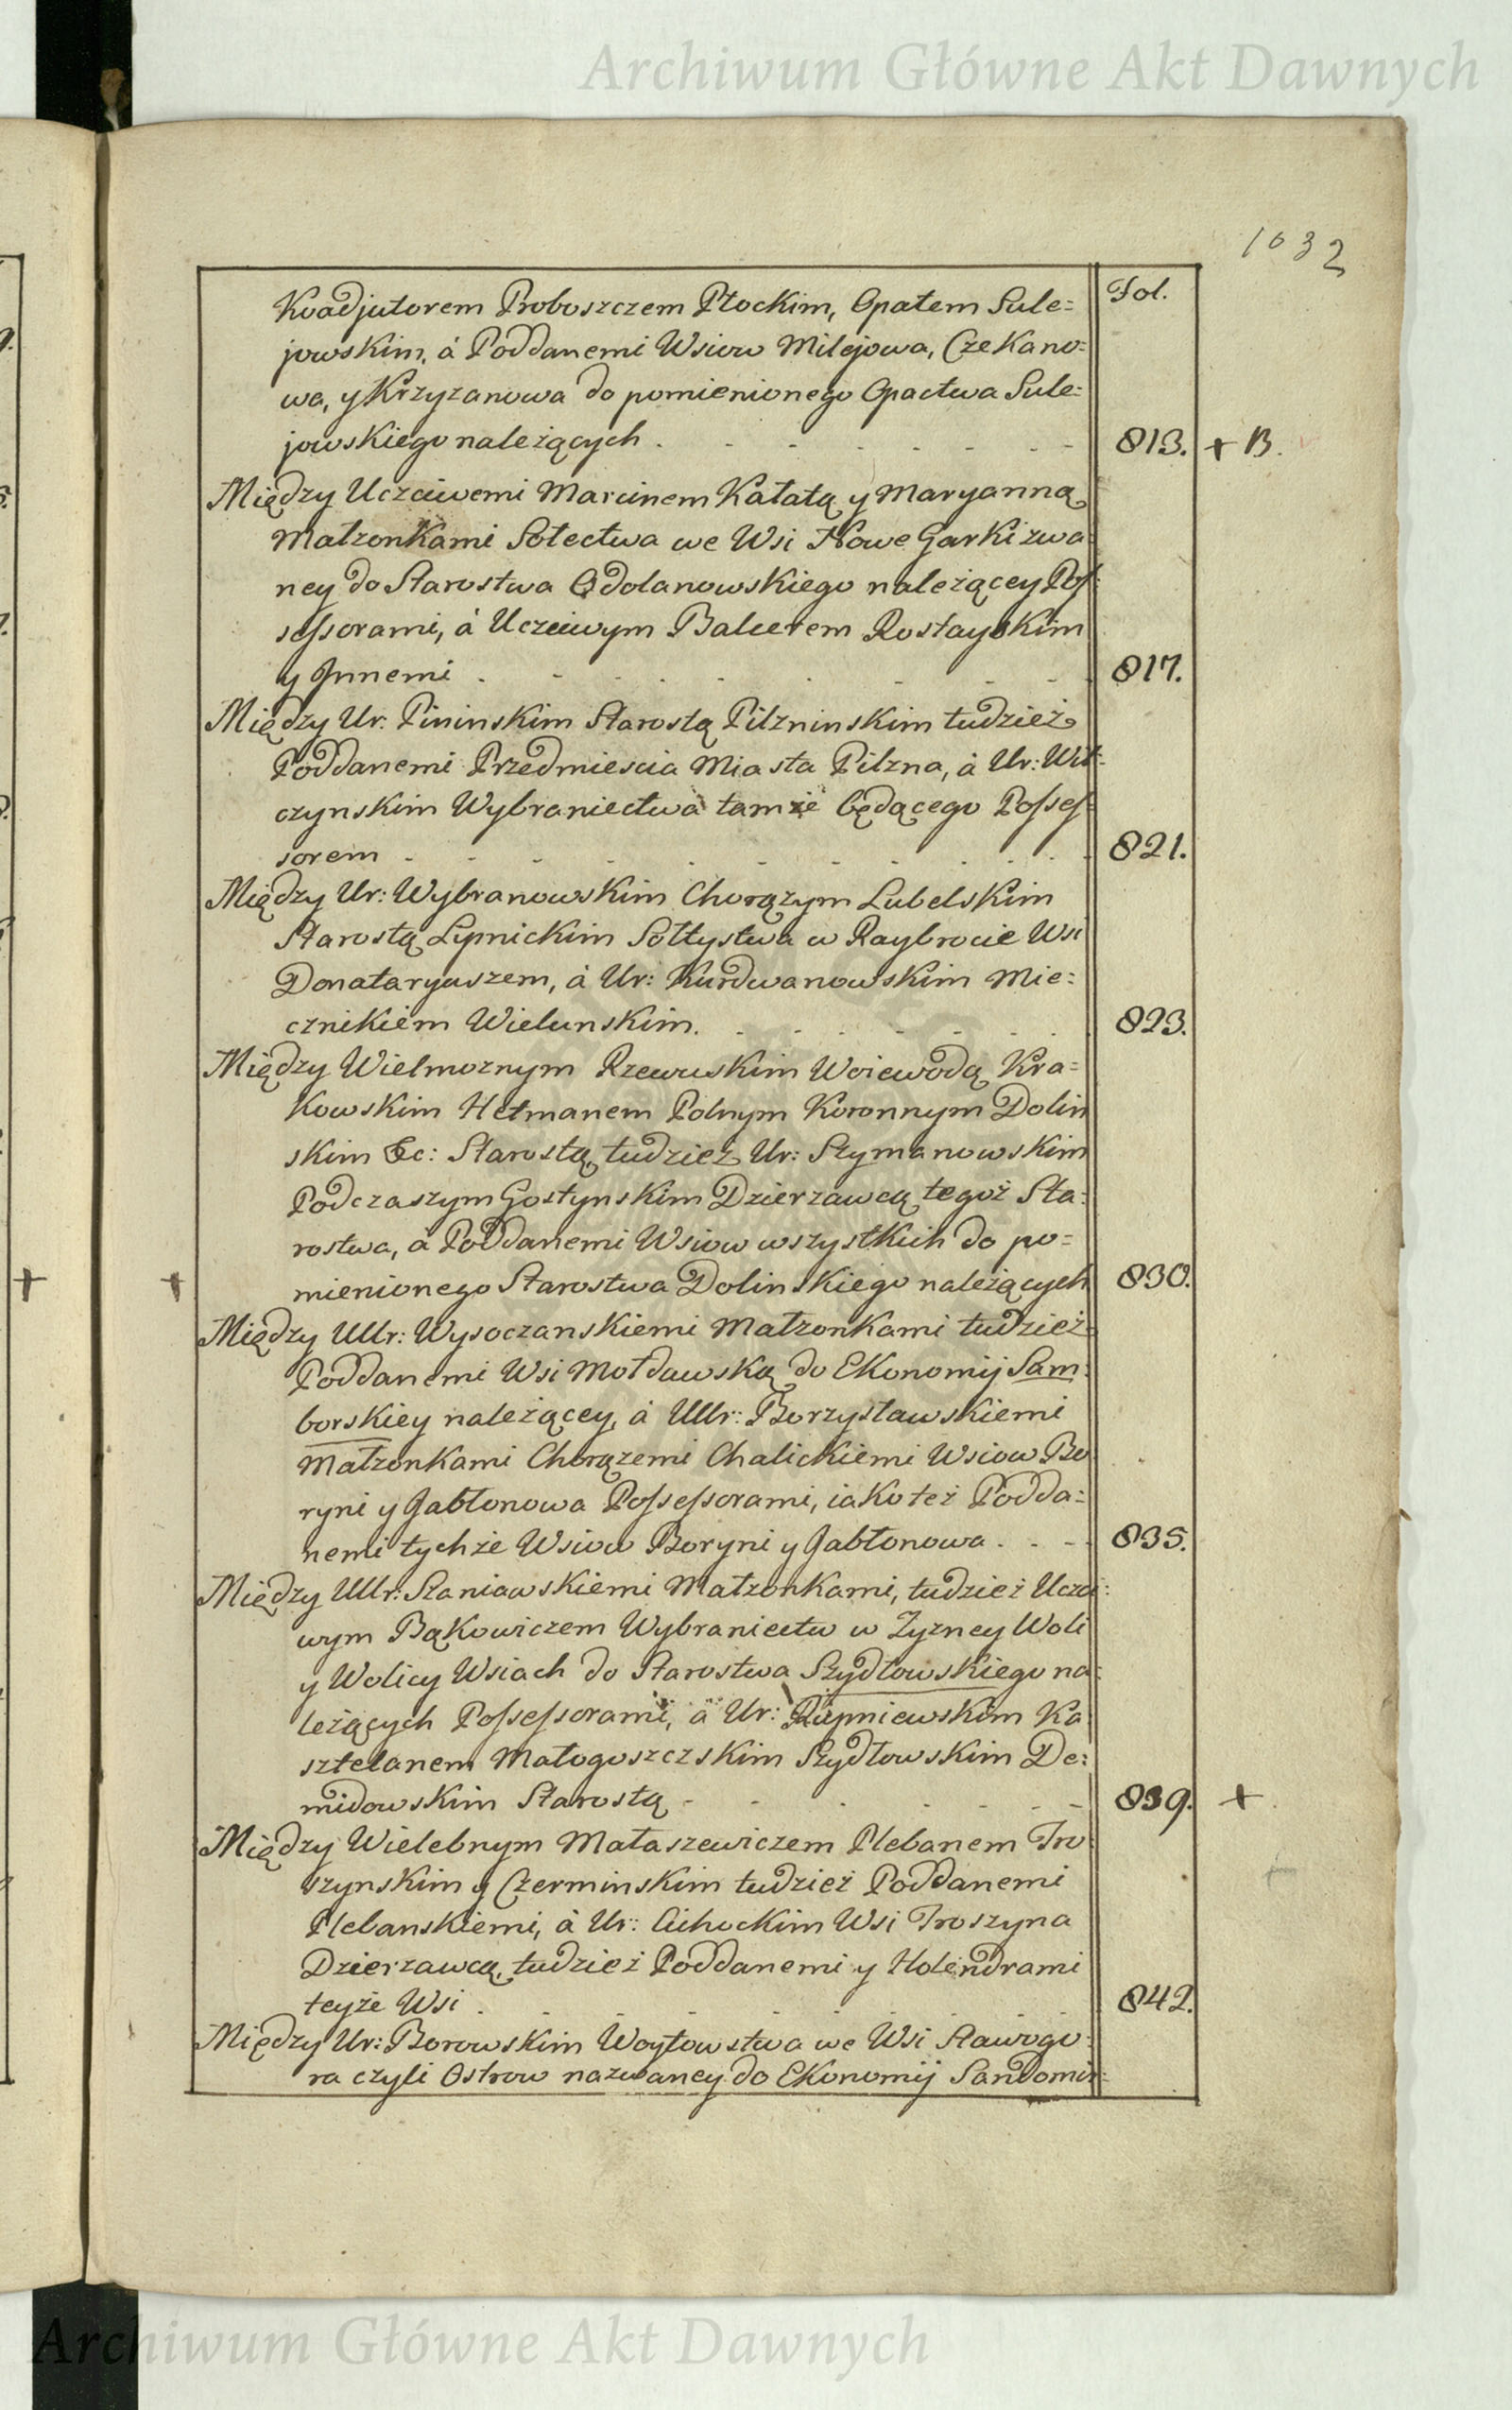 Archiwum Główne Akt Dawnych
1032
Fol.
Koadjutorem Proboszczem Płockim, Opatem Sule=
jowskim, á Poddanemi Wsiow Milejowa, Czekano=
wa, y Krzyżanowa do pomienionego Opactwa Sule=
jowskiego należących . - - - - - 813. + B.
Między Uczciwemi Marcinem Kałatą y Maryanną
Małżonkami Sołectwa we Wsi Nowe Garki zwa=
ney do Starostwa Odolanowskiego należącey Pos=
sessorami, á Uczciwym Balcerem Rostayskim
y Jnnemi . - - - - - 817.
Między Ur: Pininskim Starostą Pilzninskim tudzież
Poddanemi Przedmiescia Miasta Pilzna, á Ur: Wil=
czynskim Wybraniectwa tamże będącego Posses=
sorem - - - - - - 821.
Między Ur: Wybranowskim Chorążym Lubelskim
Starostą Lipnickim Sołtystwa w Raybrocie Wsi
Donataryuszem, á Ur: Kurdwanowskim Mie=
cznikiem Wielunskim. - - - - - 823.
Między Wielmoznym Rzewuskim Woiewodą Kra=
kowskim Hetmanem Polnym Koronnym Dolin
skim &c: Starostą, tudzież Ur: Szymanowskim
Podczaszym Gostynskim Dzierzawcą tegoż Sta=
rostwa, á Poddanemi Wsiow wszystkich do po=
+ + mienionego Starostwa Dolinskiego należących 830.
Między UUr: Wysoczanskiemi Małżonkami tudzież
Poddanemi Wsi Mołdawską do Ekonomij Sam=
borskiey należącey, á UUr: Borzysławskiemi
Małzonkami Chorążemi Chalickiemi Wsiow Bo=
ryni y Jabłonowa Possessorami, iako też Podda=
nemi tychże Wsiow Boryni y Jabłonowa . - - 835.
Między UUr: Staniawskiemi Małzonkami, tudzież Uczci=
wym Bąkowiczem Wybraniectw w Zyzney Woli
y Wolicy Wsiach do Starostwa Szydłowskiego na=
leżących Possessorami, á Ur: Rupniewskim Ka=
sztelanem Małogoszczskim Szydłowskim De=
midowskim Starostą - - - - - 839. +
Między Wielebnym Mataszewiczem Plebanem Tro=
szynskim y Czerminskim tudzież Poddanemi
Plebanskiemi, á Ur: Cichockim Wsi Troszyna
Dzierzawcą, tudzież Poddanemi y Holendrami
teyże Wsi . - - - - - 842.
Między Ur: Borowskim Woytowstwa we Wsi Sławogo=
ra czyli Ostrow nazwaney do Ekonomij Sandomir=
Archiwum Główne Akt Dawnych